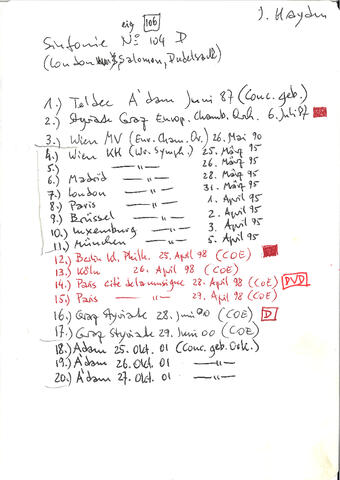 J. Haydn
eig 106
Sinfonie No 104 D
(London, Salomon, Dudelsack)
1.) Teldec A'dam Juni 87 (Conc. geb.)
2.) Styriade Graz Europ. Chamb. Orch. 6. Juli 87
3.) Wien MV (Eur. Cham. Or.) 26. Mai 90
4.) Wien KH (Wr. Symph.) 25. März 95
5.) —"— 26. März 95
6.) Madrid —"— 28. März 95
7.) London —"— 31. März 95
8.) Paris —"— 1. April 95
9.) Brüssel —"— 2. April 95
10.) Luxemburg —"— 3. April 95
11.) München —"— 5. April 95
12.) Berlin Kl. Philh. 25. April 98 (COE)
13.) Köln 26. April 98 (COE)
14.) Paris cité de la musique 28. April 98 (COE) DVD
15.) Paris —"— 29. April 98 (COE)
16.) Graz Styriade 28. Juni 00 (COE) D
17.) Graz Styriade 29. Juni 00 (COE)
18.) A'dam 25. Okt. 01 (Conc. geb. Ork.)
19.) A'dam 26. Okt. 01 —"—
20.) A'dam 27. Okt. 01 —"—